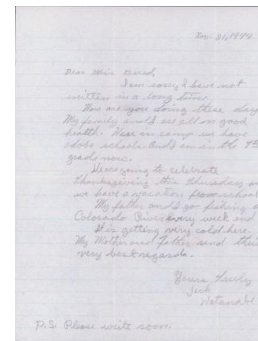 Dear Miss Breed,
I am sorry I have not
written in a long time.
How are you doing these days
My family and I are all in good
health. Here in camp we have
adobe schools. And I'm in the 9th
grade now.
We're going to celebrate
Thanksgiving this Thursday and
we have a vacation from school.
My father and I go fishing at
Colorado River every week end
It is getting very cold here.
My Mother and father send their
very best regards.
Yours truly
Jack
Watanabe
P.S. Please write soon.